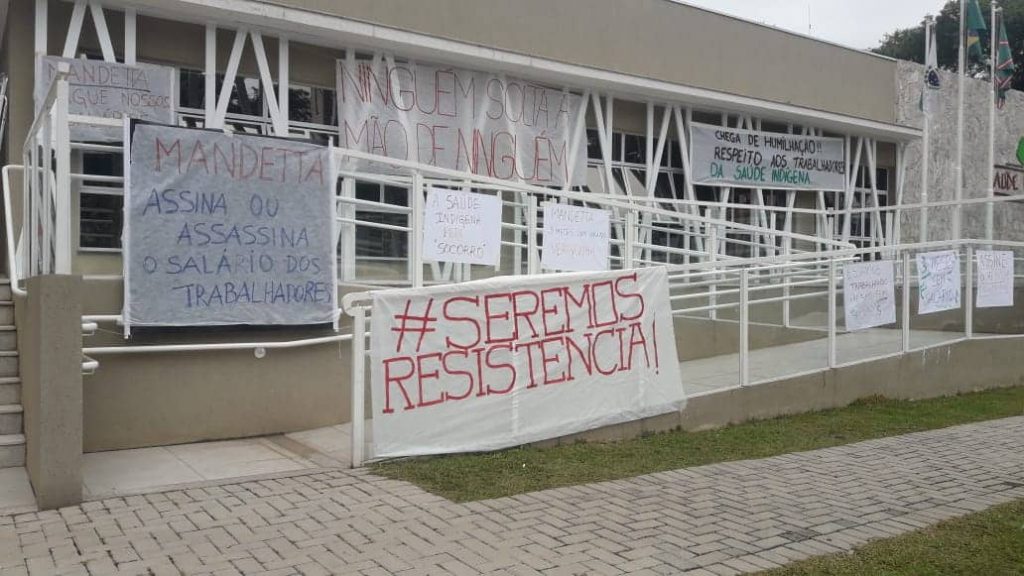 MANDETTA
NOSSOS
NINGUÉM SOLTA A
MÃO DE NINGUÉM
CHEGA DE HUMILHAÇÃO!!
RESPEITO AOS TRABALHADORES
DA SAÚDE INDÍGENA
MANDETTA
ASSINA OU
ASSASSINA
O SALÁRIO DOS
TRABALHADORES
A SAÚDE
INDÍGENA
PEDE
"SOCORRO"
MANDETTA
3 MESES SEM SALÁRIO
VERGONHA
#SEREMOS
RESISTENCIA!
ASSINE